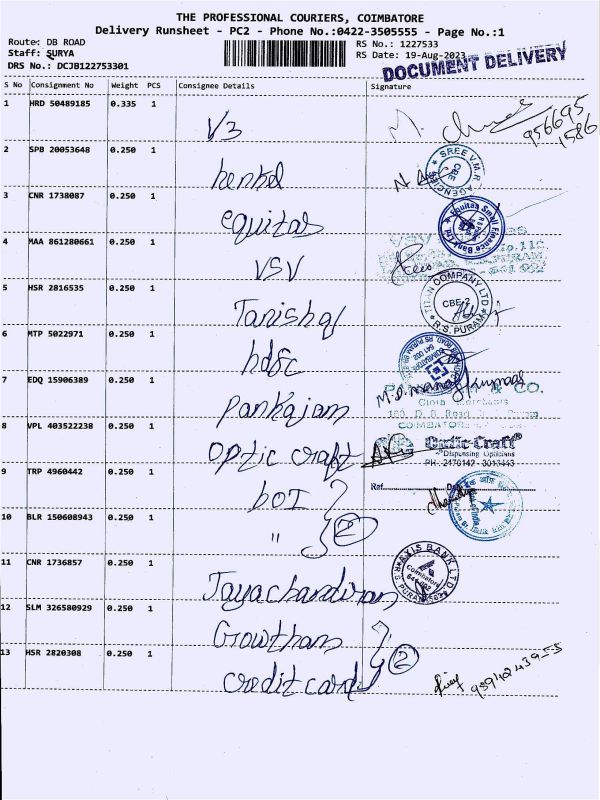 THE PROFESSIONAL COURIERS, COIMBATORE
Delivery Runsheet - PC2 - Phone No.:0422-3505555 - Page No.:1
Route: DB ROAD
Staff: SURYA
DRS No.: DCJB122753301
RS No.: 1227533
RS Date: 19-Aug-2023
DOCUMENT DELIVERY
S No Consignment No Weight PCS Consignee Details Signature
1 HRD 50489185 0.335 1
V3
956695
1586
2 SPB 20053648 0.250 1
henkel
SREE V.M.R AGENCIES CBE
3 CNR 1738087 0.250 1
equitas
Equitas Small Finance Bank Ltd.
4 MAA 861280661 0.250 1
VSV
5 HSR 2816535 0.250 1
Tanishq
TITAN COMPANY LTD
CBE-2
R.S. PURAM
6 MTP 5022971 0.250 1
hdfc
7 EDQ 15906389 0.250 1
Pankajam
& CO.
Cloth Merchants
COIMBATORE
8 VPL 403522238 0.250 1
Optic craft
Optic Craft®
Dispensing Opticians
PH: 2470142 - 3013443
9 TRP 4960442 0.250 1
Ref.
BOI
10 BLR 150608943 0.250 1
" 2
11 CNR 1736857 0.250 1
AXIS BANK LTD.
Coimbatore
R.S. PURAM
Jayachandiran
12 SLM 326580929 0.250 1
Gowtham
13 HSR 2820308 0.250 1
2
credit card